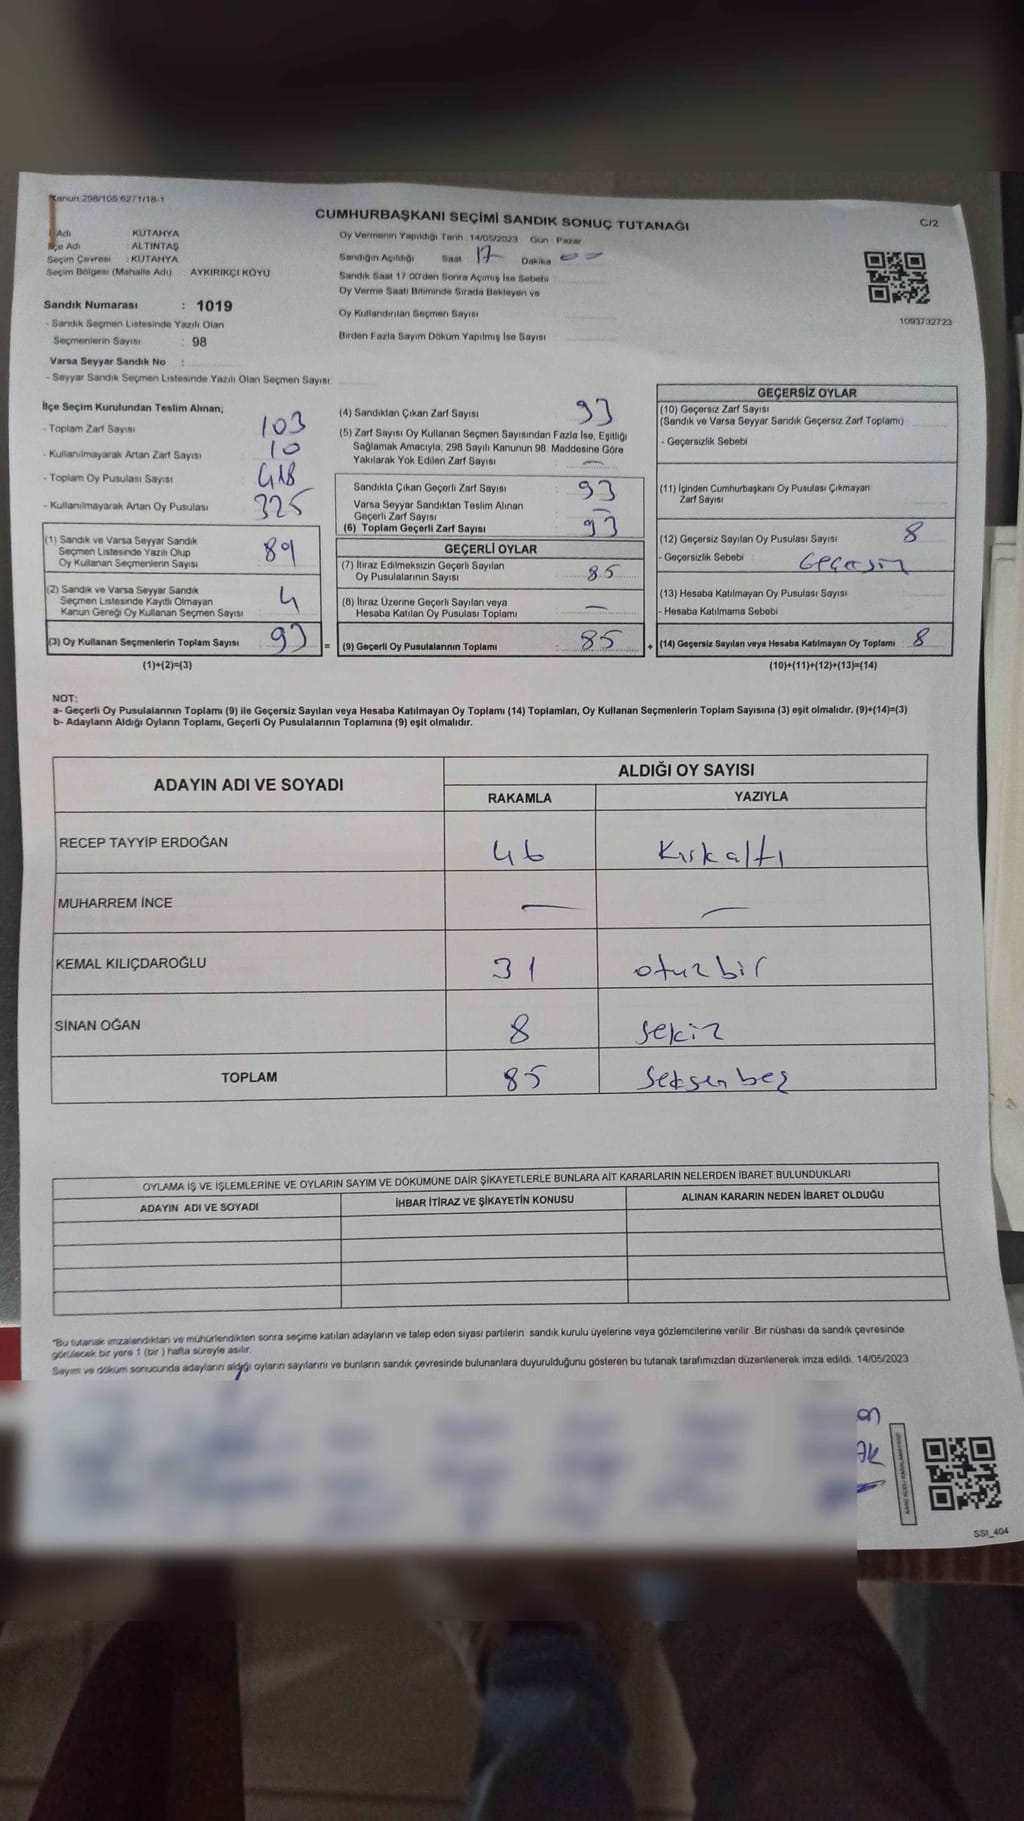 Kanun:298/105,6271/18-1
CUMHURBAŞKANI SEÇİMİ SANDIK SONUÇ TUTANAĞI
C/2
Adı KÜTAHYA
İlçe Adı ALTINTAŞ
Seçim Çevresi : KÜTAHYA
Seçim Bölgesi (Mahalle Adı) : AYKIRIKÇI KÖYÜ
Oy Vermenin Yapıldığı Tarih 14/05/2023 Gün Pazar
Sandığın Açıldığı Saat 17 Dakika 00
Sandık Saat 17.00'den Sonra Açılmış İse Sebebi
Oy Verme Saati Bitiminde Sırada Bekleyen ve
Oy Kullandırılan Seçmen Sayısı
Birden Fazla Sayım Döküm Yapılmış İse Sayısı
1093732723
Sandık Numarası : 1019
- Sandık Seçmen Listesinde Yazılı Olan
Seçmenlerin Sayısı : 98
Varsa Seyyar Sandık No :
- Seyyar Sandık Seçmen Listesinde Yazılı Olan Seçmen Sayısı:
İlçe Seçim Kurulundan Teslim Alınan;
- Toplam Zarf Sayısı : 103
- Kullanılmayarak Artan Zarf Sayısı : 10
- Toplam Oy Pusulası Sayısı : 418
- Kullanılmayarak Artan Oy Pusulası : 325
(1) Sandık ve Varsa Seyyar Sandık
Seçmen Listesinde Yazılı Olup
Oy Kullanan Seçmenlerin Sayısı : 89
(2) Sandık ve Varsa Seyyar Sandık
Seçmen Listesinde Kayıtlı Olmayan
Kanun Gereği Oy Kullanan Seçmen Sayısı : 4
(3) Oy Kullanan Seçmenlerin Toplam Sayısı : 93 =
(1)+(2)=(3)
(4) Sandıktan Çıkan Zarf Sayısı : 93
(5) Zarf Sayısı Oy Kullanan Seçmen Sayısından Fazla İse, Eşitliği
Sağlamak Amacıyla, 298 Sayılı Kanunun 98. Maddesine Göre
Yakılarak Yok Edilen Zarf Sayısı : —
Sandıkta Çıkan Geçerli Zarf Sayısı : 93
Varsa Seyyar Sandıktan Teslim Alınan
Geçerli Zarf Sayısı : —
(6) Toplam Geçerli Zarf Sayısı : 93
GEÇERLİ OYLAR
(7) İtiraz Edilmeksizin Geçerli Sayılan
Oy Pusulalarının Sayısı : 85
(8) İtiraz Üzerine Geçerli Sayılan veya
Hesaba Katılan Oy Pusulası Toplamı : —
(9) Geçerli Oy Pusulalarının Toplamı : 85 +
GEÇERSİZ OYLAR
(10) Geçersiz Zarf Sayısı
(Sandık ve Varsa Seyyar Sandık Geçersiz Zarf Toplamı)
- Geçersizlik Sebebi
(11) İçinden Cumhurbaşkanı Oy Pusulası Çıkmayan
Zarf Sayısı
(12) Geçersiz Sayılan Oy Pusulası Sayısı : 8
- Geçersizlik Sebebi :
(13) Hesaba Katılmayan Oy Pusulası Sayısı :
- Hesaba Katılmama Sebebi :
(14) Geçersiz Sayılan veya Hesaba Katılmayan Oy Toplamı : 8
(10)+(11)+(12)+(13)=(14)
NOT:
a- Geçerli Oy Pusulalarının Toplamı (9) ile Geçersiz Sayılan veya Hesaba Katılmayan Oy Toplamı (14) Toplamları, Oy Kullanan Seçmenlerin Toplam Sayısına (3) eşit olmalıdır. (9)+(14)=(3)
b- Adayların Aldığı Oyların Toplamı, Geçerli Oy Pusulalarının Toplamına (9) eşit olmalıdır.
ADAYIN ADI VE SOYADI ALDIĞI OY SAYISI
RAKAMLA YAZIYLA
RECEP TAYYİP ERDOĞAN 46 Kırkaltı
MUHARREM İNCE — —
KEMAL KILIÇDAROĞLU 31 otuzbir
SİNAN OĞAN 8 sekiz
TOPLAM 85 Seksenbeş
OYLAMA İŞ VE İŞLEMLERİNE VE OYLARIN SAYIM VE DÖKÜMÜNE DAİR ŞİKAYETLERLE BUNLARA AİT KARARLARIN NELERDEN İBARET BULUNDUKLARI
ADAYIN ADI VE SOYADI İHBAR İTİRAZ VE ŞİKAYETİN KONUSU ALINAN KARARIN NEDEN İBARET OLDUĞU
*Bu tutanak imzalandıktan ve mühürlendikten sonra seçime katılan adayların ve talep eden siyasi partilerin sandık kurulu üyelerine veya gözlemcilerine verilir. Bir nüshası da sandık çevresinde
görülecek bir yere 1 (bir ) hafta süreyle asılır.
Sayım ve döküm sonucunda adayların aldığı oyların sayılarını ve bunların sandık çevresinde bulunanlara duyurulduğunu gösteren bu tutanak tarafımızdan düzenlenerek imza edildi. 14/05/2023
SSI_404